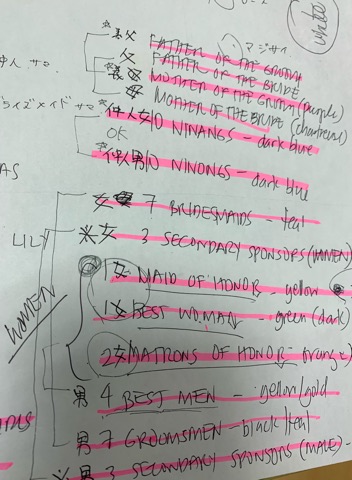 white
マジサイ
父 FATHER OF THE GROOM
父 FATHER OF THE BRIDE
母 MOTHER OF THE GROOM (purple)
母 MOTHER OF THE BRIDE (chartreuse)
仲人 サマ
ライズメイド サマ
仲人女 10 NINANGS - dark blue
OK
仲人男 10 NINONGS - dark blue
AS
女 7 BRIDESMAIDS - teal
LILY
※女 3 SECONDARY SPONSORS (WOMEN)
WOMEN
1女 MAID OF HONOR - yellow
1女 BEST WOMAN - green (dark)
2女 MATRONS OF HONOR - orange
男 4 BEST MEN - yellow/gold
男 7 GROOMSMEN - black/teal
※男 3 SECONDARY SPONSORS (MALE) -